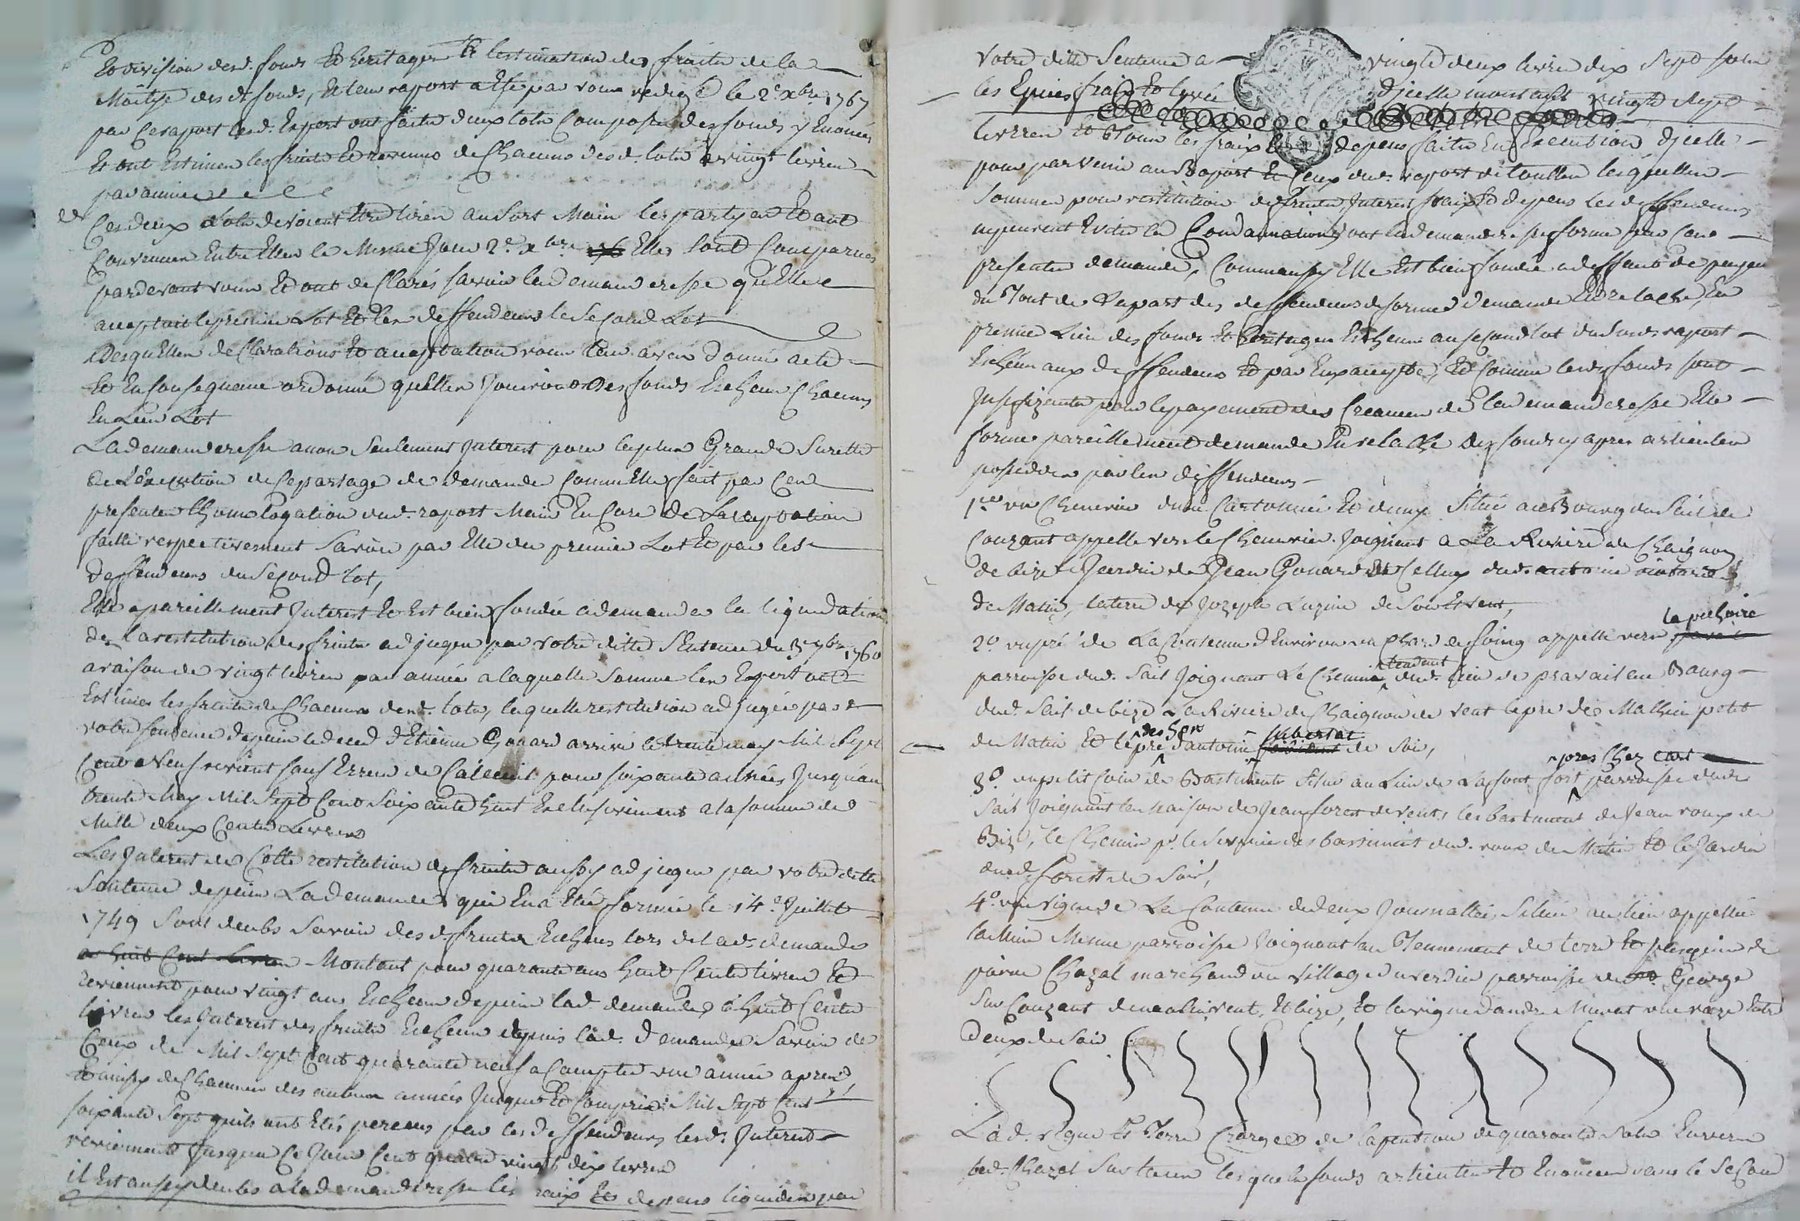 Et division desd. fonds Et heritages Et lestimation des fruits de la
Maitse des dt fonds, Et leur raport a Eté par vous redigé le 2e xbre 1767
par ce raport lesd. Expert ont faits deux lots Composés des fonds y Enoncés
Et ont Estimés les fruits Et revenus de Chacuns desd. lots a vingt livres
par année
Ces deux Lots devoient Etre tirés au sort Mais les partyes Etant
Convenues Entre Elles le Mesme Jour 2e xbre Elles sont Comparues
pardevant vous Et ont declarés savoir la demanderesse qu'Elle
acceptoit le premier Lot Et les deffendeurs le second Lot
Desquelles declarations Et acceptation vous leur avés donné acte
Et En Consequence ordonné qu'elles Jouiroient des fonds Echeus Chacuns
En Leur Lot
La demanderesse a non seulement Interest pour la plus Grande surette
de L'Execution de ce partage de demander Comme Elle fait par Ces
presentes L'homologation dud. raport Mais Encore de L'acceptation
faitte respectivement savoir par Elle du premier Lot Et par les
deffendeurs du second lot,
Elle a pareillement Interest Et Est bien fondée a demander la liquidation
de la restitution des fruits adjugés par votre ditte sentence du 3e 7bre 1760
a raison de vingt livres par année a laquelle somme les Expert ont
Estimés les fruits de Chacuns desd. lots, laquelle restitution adjugée par
votre sentence depuis le deced d'Etienne Gonard arrivé le trente may Mil sept
Cent neuf revient sauf Erreur de Calcul pour soixante années Jusqu'au
trente May Mil sept Cent soixante huit Exclusivement a la somme de
Mille deux Cents Livres
Les Interest de Cette restitution de fruits aussy adjugés par votre ditte
sentence depuis La demande qui En a Eté formée le 14e Juillet
1749 sont deubs savoir desd. fruits Echeus lors de lad. demande
Montant pour quarante ans huit Cents livres Et
reviennent pour vingt ans Echeus depuis lad. demande a huit Cents
livres les Interest des fruits Echeus depuis lad. demande savoir de
Ceux de Mil sept Cent quarante neuf a Compter une année apres
Et ainsy de Chacune des autres années Jusques Et Compris Mil sept Cent
soixante sept qu'ils ont Etés perceus par les deffendeurs lesd. Interest
reviennent Jusqu'a Ce Jour Cent quatre vingt dix livres
il Est aussy deubs a la demanderesse les fraix Et depens liquidés par
votre ditte sentence a vingt deux livres dix sept sols
les Epices fraix Et levée d'icelle montant vingt sept
livres Et Tous les fraix Et depens faits En Execution d'icelle
pour parvenir au Raport Et Ceux dud. raport de touttes lesquelles
sommes pour restitution de fruits Interest fraix Et depens les deffendeurs
ne peuvent Eviter la Condamnation dont la demanderesse forme par Ces
presentes demande, Comme aussy Elle Est bien fondée a deffaut de payer
du Tout de La part des deffendeurs de former demande En relache En
premier Lieu des fonds Et heritages Echeus au second lot dud. raport
Echeu aux deffendeurs Et par Eux accepté, Et Comme lesd. fonds sont
Insuffizants pour le payement des Creances de la demanderesse Elle
forme pareillement demande En relache des fonds cy apres articulés
possedés par les deffendeurs
1o un Chenevier d'une Cartonnée Et demy Situé au Bourg dud. Sail de
Couzant appellé vers le Chenevier Joignant a La Riviere de Chaignon
de bize Jardin de Jean Gonard Et Celluy dud. antoine
de Matin, la terre de Jozeph Luzine de soir Et vent,
2o un pré de La Contenue d'Environ un Char de foing appellé vers la pichoire
parroisse dud. Sail Joignant Le Chemin tendant dud. lieu de pravail au Bourg
dud. Sail de bize La Riviere de Chaignon de vent le pré de Mathieu petit
de Matin Et le pré des hers d'antoine de soir,
3o un petit Coin de Bastiments situé au Lieu de Lafont fort parroisse dud.
Sail Joignant la maison de Jean forest de vent, les bastiment de Jean roux de
Bize, le Chemin pr. le service des bastiment dud. roux de Matin Et le Jardin
dud. forest de soir,
4o une vigne de La Contenue de deux Journallée, Situé au lieu appellé
la Mine Mesme parroisse Joignant au Tennement de terre Et paquier de
pierre Chazal marchand du village du verdier parroisse de St. George
sur Couzant de matin vent, Et bize, Et la vigne d'andre Murat une raze Entre
deux de soir
Lad. vigne Et Terre Chargée de la pention de quarante sols Envers
led. Chazal Surtaux lesquels fonds articulés Et Enoncés dans le second